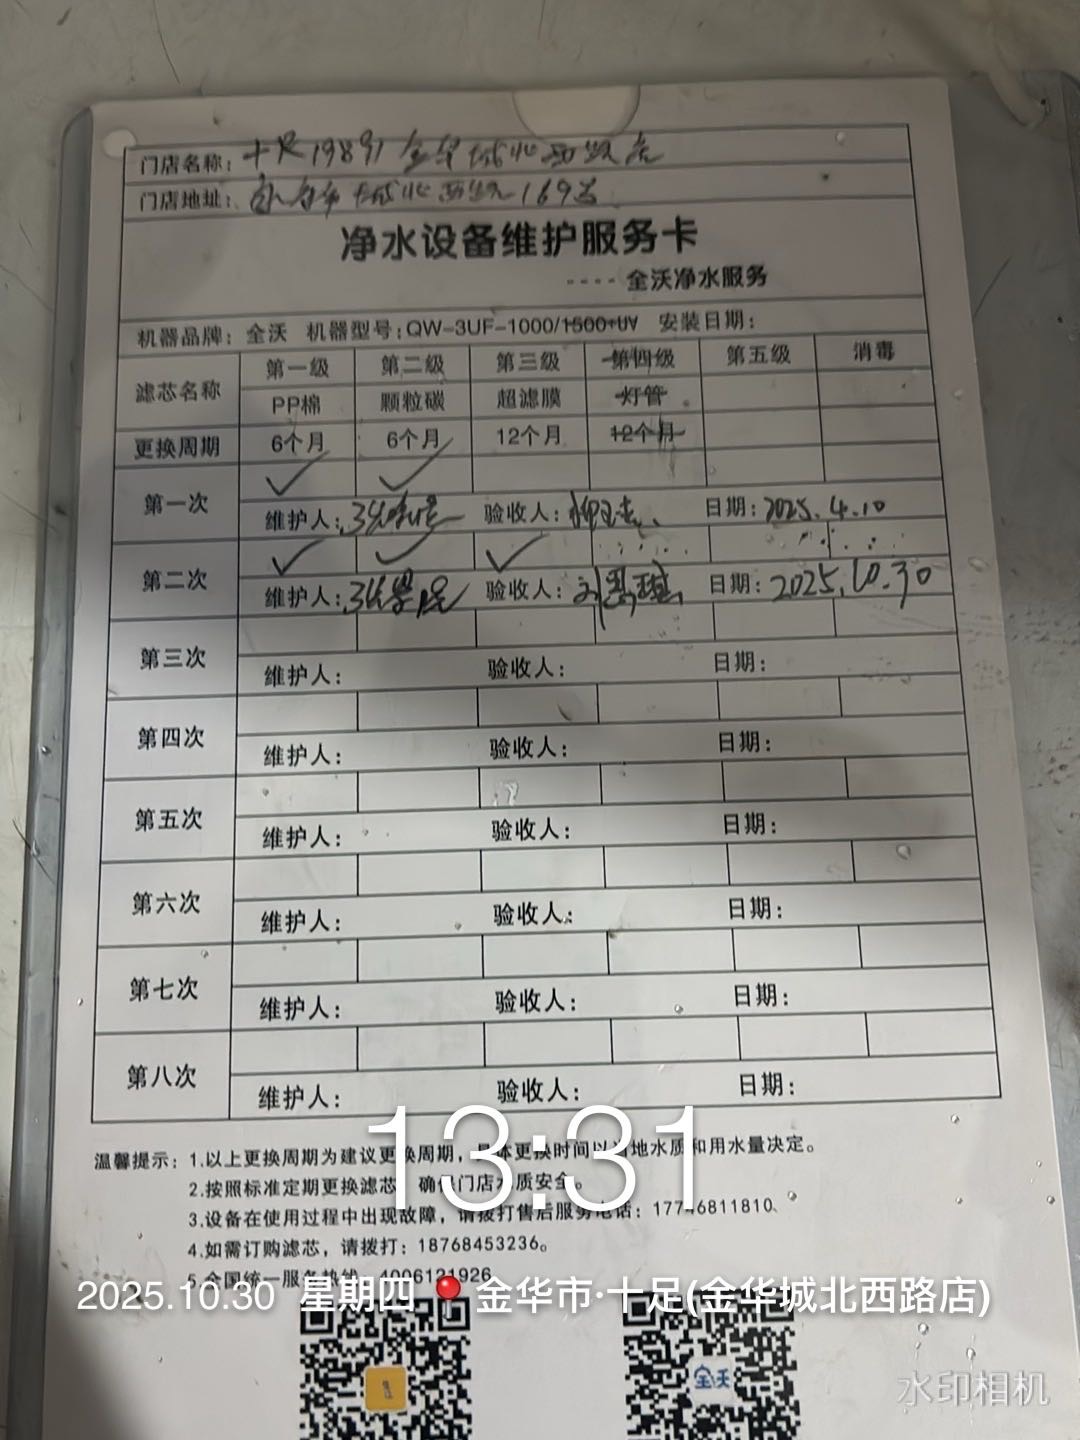 门店名称：十足19891金华城北西路店
门店地址：金华市城北西路169号
净水设备维护服务卡
----全沃净水服务
机器品牌：全沃 机器型号：QW-3UF-1000/1500+UV 安装日期：
滤芯名称 第一级 第二级 第三级 第四级 第五级 消毒
PP棉 颗粒碳 超滤膜 灯管
更换周期 6个月 6个月 12个月 12个月
第一次 ✓ ✓
维护人： 验收人： 日期：2025.4.10
第二次 ✓ ✓ ✓
维护人： 验收人： 日期：2025.10.30
第三次
维护人： 验收人： 日期：
第四次
维护人： 验收人： 日期：
第五次
维护人： 验收人： 日期：
第六次
维护人： 验收人： 日期：
第七次
维护人： 验收人： 日期：
第八次
维护人： 验收人： 日期：
13:31
温馨提示：1.以上更换周期为建议更换周期，具体更换时间以当地水质和用水量决定。
2.按照标准定期更换滤芯，确保门店水质安全。
3.设备在使用过程中出现故障，请拨打售后服务电话：17746811810
4.如需订购滤芯，请拨打：18768453236。
5.全国统一服务热线：4006121926
2025.10.30 星期四 金华市·十足(金华城北西路店)
全沃
水印相机